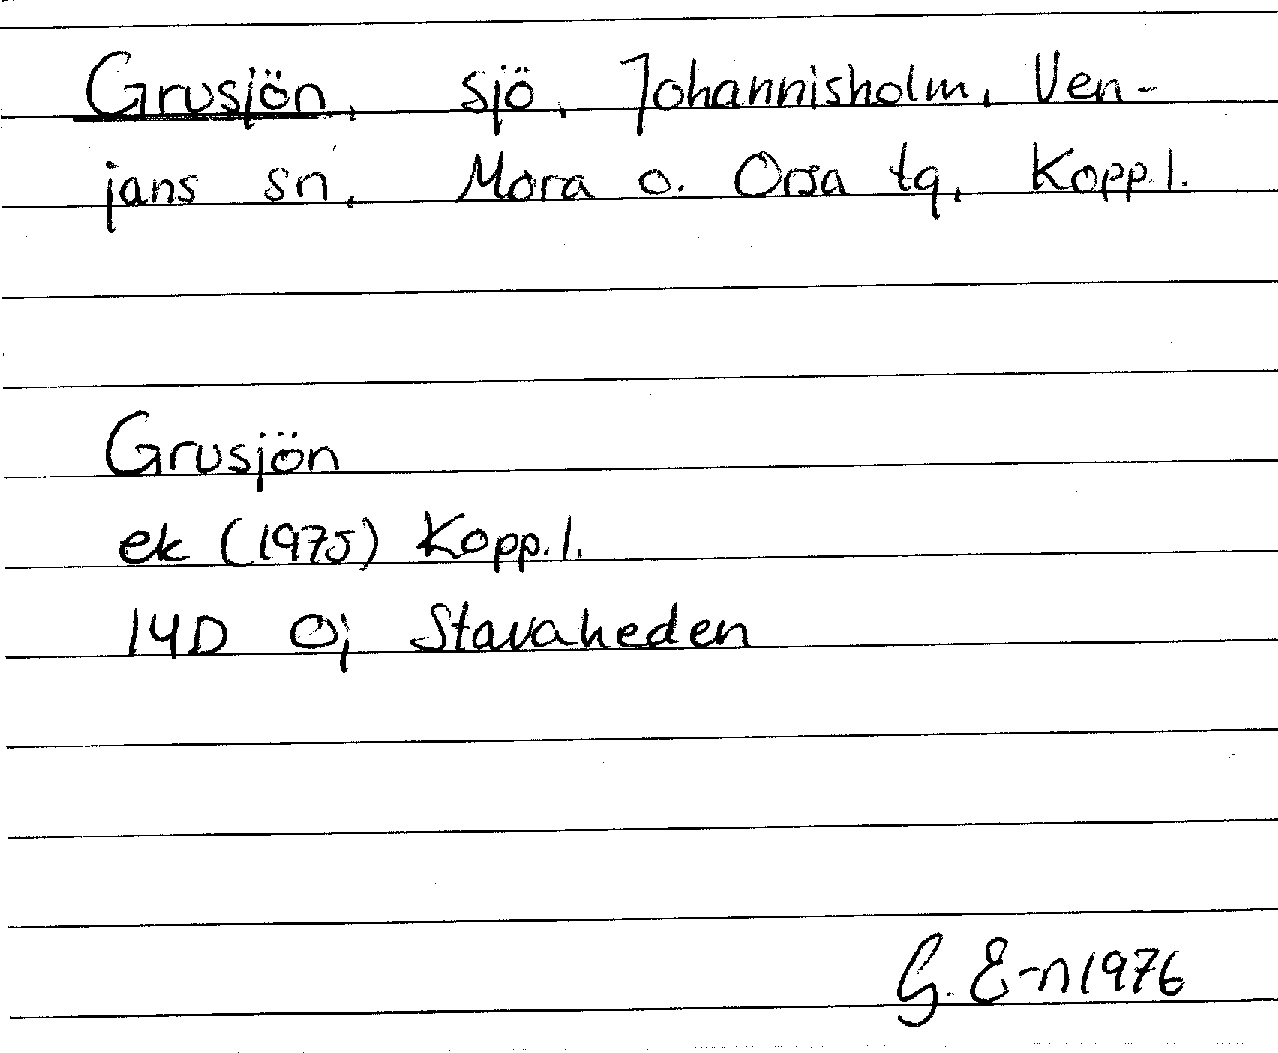 Grusjön, sjö, Johannisholm, Ven-
jans sn, Mora o. Orsa tg, Kopp.l.
Grusjön
ek (1975) Kopp.l.
14D 0j Stavaheden
G. E-n 1976